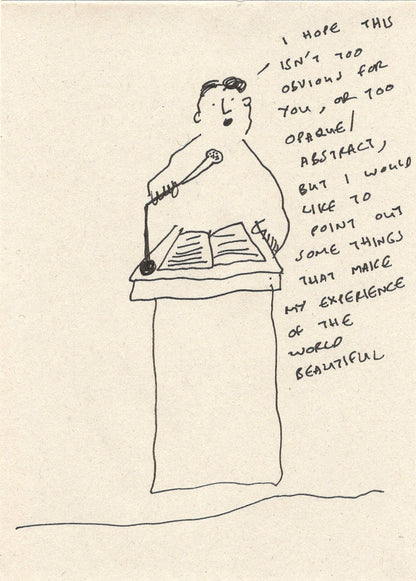 I HOPE THIS
ISN'T TOO
OBVIOUS FOR
YOU, OR TOO
OPAQUE/
ABSTRACT,
BUT I WOULD
LIKE TO
POINT OUT
SOME THINGS
THAT MAKE
MY EXPERIENCE
OF THE
WORLD
BEAUTIFUL